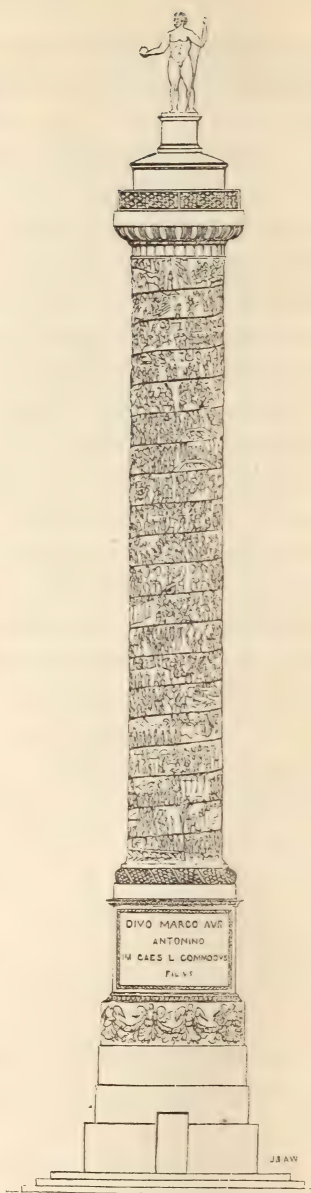 DIVO MARCO AVR
ANTONINO
IM CAES L COMMODVS
FILIVS